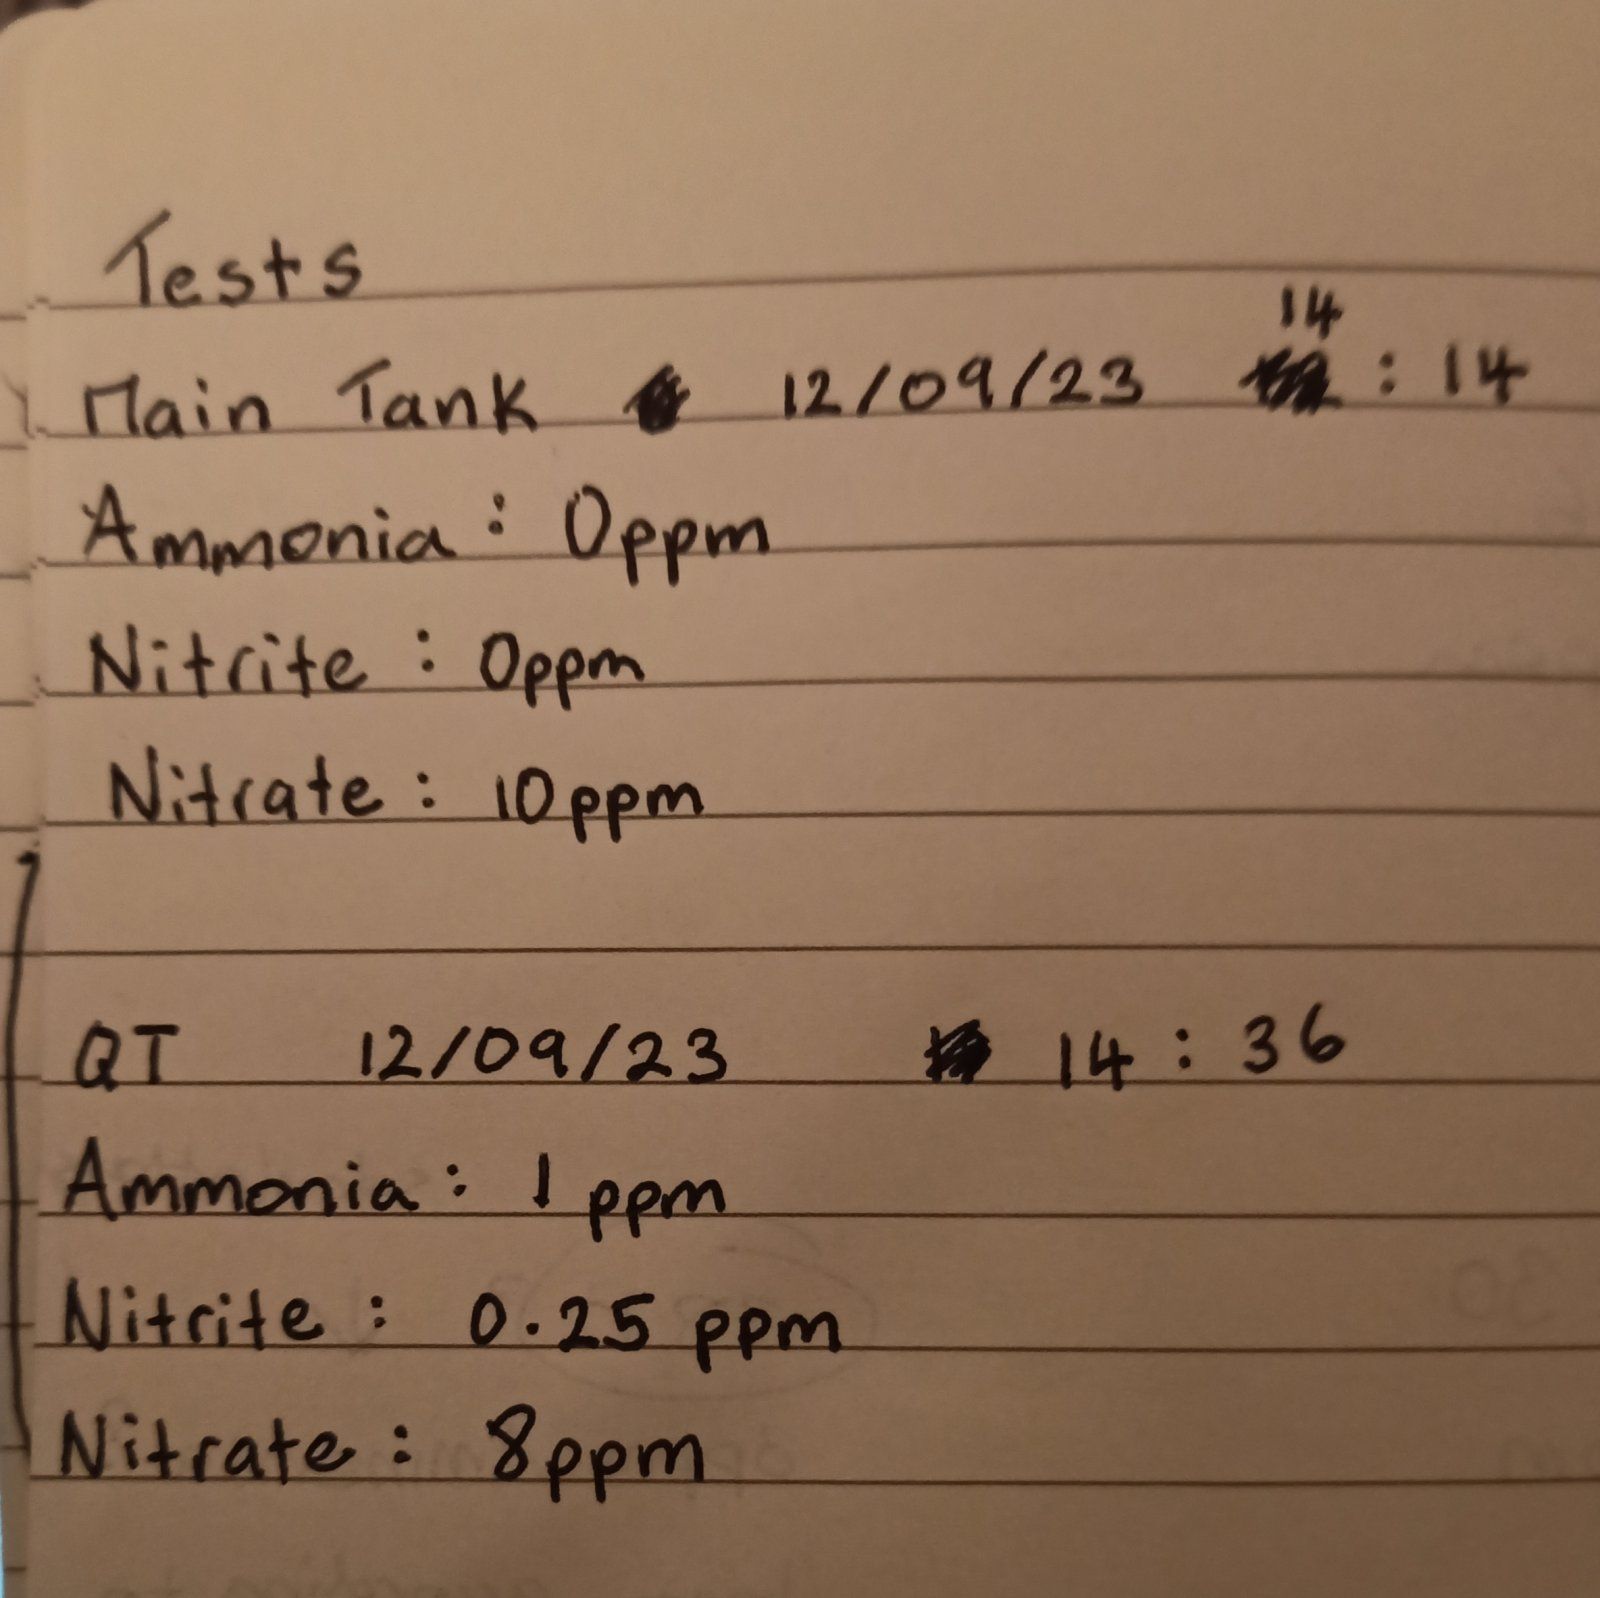 Tests
Main Tank 12/09/23 14 : 14
Ammonia : 0ppm
Nitrite : 0ppm
Nitrate : 10ppm
QT 12/09/23 14 : 36
Ammonia : 1 ppm
Nitrite : 0.25 ppm
Nitrate : 8ppm